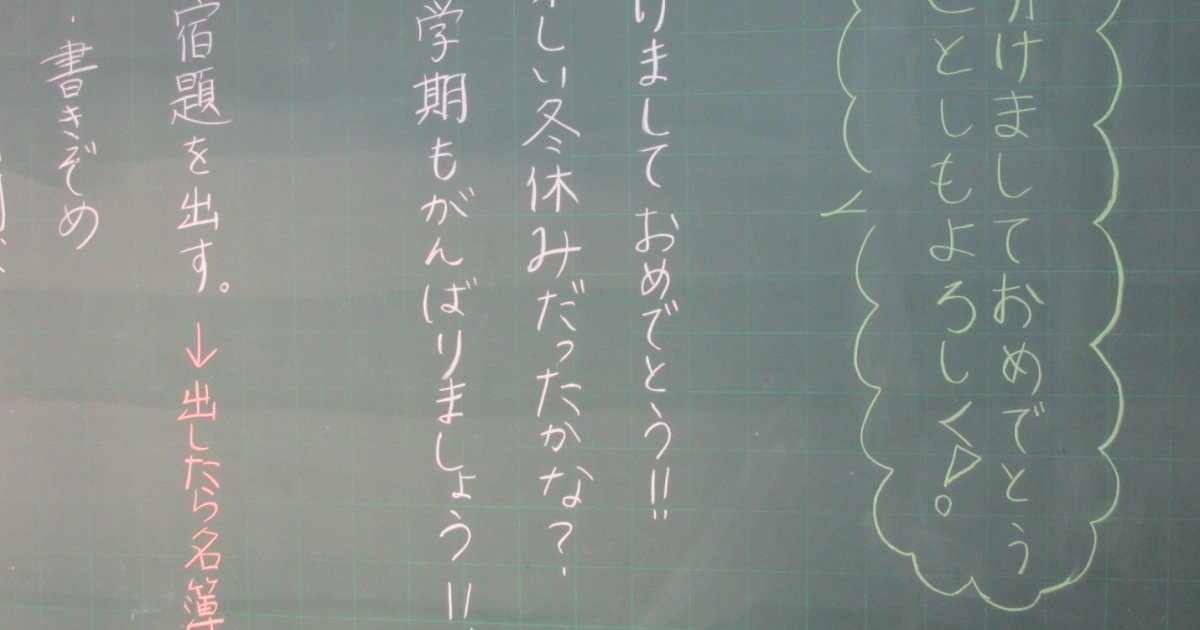 けましておめでとう
としもよろしく!
けまして おめでとう!!
しい冬休みだったかな?
学期もがんばりましょう!!
宿題を出す。→出したら名簿
・書きぞめ